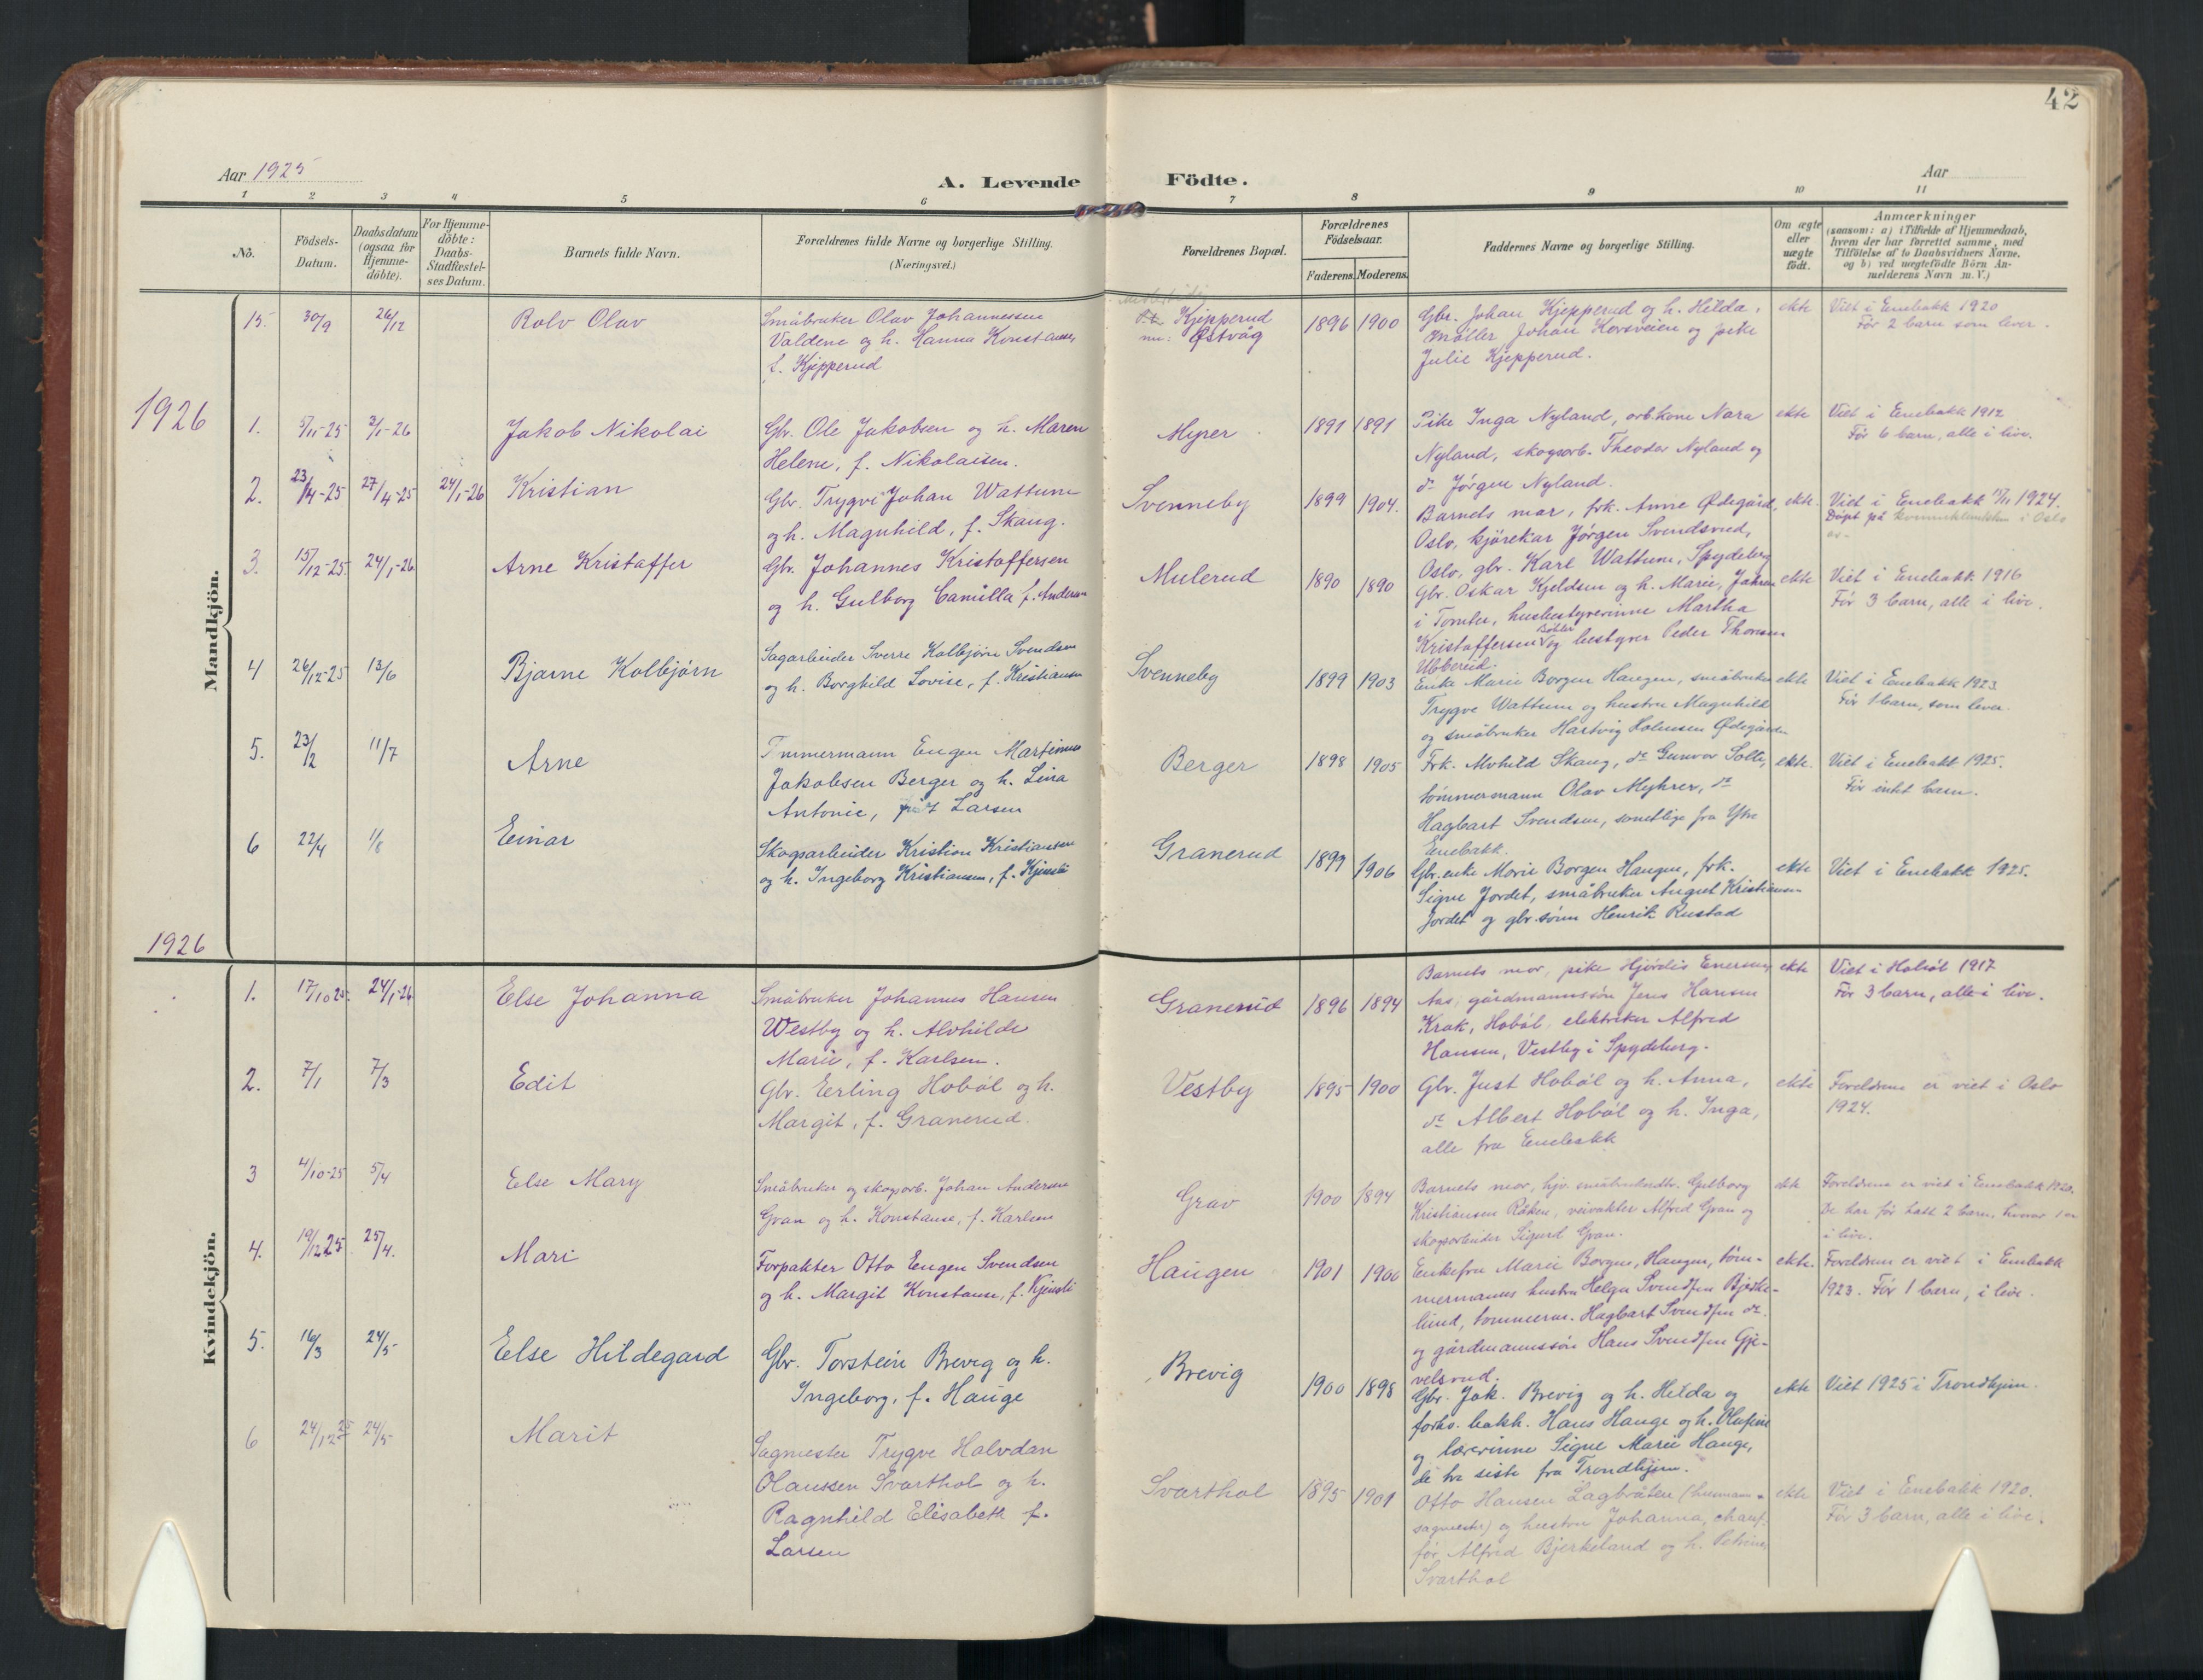 42
Aar 1925
A. Levende Födte.
Aar
1 2 3 4 5 6 7 8 9 10 11
No.
Födsels-Datum.
Daabsdatum (ogsaa for Hjemme-döbte).
For Hjemme-döbte: Daabs-Stadfæstel-ses Datum.
Barnets fulde Navn.
Forældrenes fulde Navne og borgerlige Stilling.
(Næringsvei.)
Forældrenes Bopæl.
Forældrenes Födselsaar.
Faderens. Moderens.
Faddernes Navne og borgerlige Stilling.
Om ægte eller uægte födt.
Anmærkninger
(saasom: a) i Tilfælde af Hjemmedaab,
hvem der har forrettet samme, med
Tilföielse af to Daabsvidners Navne,
og b) ved uægtefödte Börn An-
melderens Navn m. V.)
Mandkjön.
15. 30/9 26/12 Rolv Olav
Småbruker Olav Johannessen
Valdene og h. Hanna Konstanse,
f. Kjepperud
Kjepperud
nu: Østvåg
1896 1900
Gbr. Johan Kjepperud og h. Hilda,
møller Johan Korsveien og pike
Julie Kjepperud.
ekte
Viet i Enebakk 1920
Før 2 barn som lever.
1926
1. 5/11-25 3/1-26 Jakob Nikolai
Gbr. Ole Jakobsen og h. Maren
Helene, f. Nikolaisen.
Myrer
1891 1891
Pike Inga Nyland, arb.kone Nara
Nyland, skogsarb. Theodor Nyland og
do Jørgen Nyland.
ekte
Viet i Enebakk 1912
Før 6 barn, alle i live.
2. 23/4-25 27/4-25 24/1-26 Kristian
Gbr. Trygve Johan Wattum
og h. Magnhild, f. Skaug.
Svenneby
1899 1904.
Barnets mor, frk. Anne Ødegård,
Oslo, kjørekar Jørgen Svendsrud,
Oslo, gbr. Karl Wattum, Spydeberg
ekte.
Viet i Enebakk 15/11 1924.
Døpt på kvinneklinikken i Oslo
3. 15/12-25 24/1-26 Arne Kristoffer
Gbr. Johannes Kristoffersen
og h. Gulborg Camilla f. Andersen
Mulerud
1890 1890
Gbr. Oskar Kjeldsen og h. Marie,
i Tomter, husbestyrerinne Martha
Kristoffersen Bøhler og bestyrer Peder Thoresen
Ubberud.
ekte
Viet i Enebakk 1916
Før 3 barn, alle i live.
4 26/12-25 13/6 Bjarne Kolbjørn
Sagarbeider Sverre Kolbjørn Svendsen
og h. Borghild Lovise, f. Kristiansen
Svenneby
1899 1903
Enke Marie Borgen Haugen, småbruker
Trygve Wattum og hustru Magnhild
og småbruker Hartvig Holmsen Ødegården
ekte
Viet i Enebakk 1923
Før 1 barn, som lever.
5. 23/2 11/7 Arne
Tømmermann Eugen Martinus
Jakobsen Berger og h. Lina
Antonie, født Larsen
Berger
1898 1905
Frk. Alvhild Skaug, do Gunvor Solli,
tømmermann Olav Myhrer, do
Hagbart Svendsen, samtlige fra Ytre
Enebakk.
ekte.
Viet i Enebakk 1925.
Før intet barn.
6 22/4 1/8 Einar
Skogsarbeider Kristian Kristiansen
og h. Ingeborg Kristiansen, f. Kjensli
Granerud
1899 1906
Gbr.enke Marie Borgen Haugen, frk.
Signe Jordet, småbruker August Kristiansen
Jordet og gbr.sønn Henrik Rustad
ekte
Viet i Enebakk 1925.
1926
Kvindekjön.
1. 17/10 25. 24/1-26 Else Johanna
Småbruker Johannes Hansen
Westby og h. Alvhilde
Marie, f. Karlsen.
Granerud
1896 1894
Barnets mor, pike Hjørdis Enersen,
Aas, gårdmannssøn Jens Hansen
Krok, Hobøl, elektriker Alfred
Hansen, Vestby i Spydeberg.
ekte
Viet i Hobøl 1917
Før 3 barn, alle i live.
2. 7/1 7/3 Edit
Gbr. Erling Hobøl og h.
Margit, f. Granerud.
Vestby
1895 1900
Gbr. Just Hobøl og h. Anna,
do Albert Hobøl og h. Inga,
alle fra Enebakk
ekte
Foreldrene er viet i Oslo
1924.
3 4/10-25 5/4 Else Mary
Småbruker og skogsarb. Johan Andersen
Gran og h. Konstanse, f. Karlsen
Grav
1900 1894
Barnets mor, hjv. småbrukerdtr. Gulborg
Kristiansen Råken, veivakter Alfred Gran og
skogsarbeider Sigurd Gran.
ekte
Foreldrene er viet i Enebakk 1920.
De har før hatt 2 barn, hvorav 1 er
i live.
4. 19/12 25 25/4. Mari
Forpakter Otto Eugen Svendsen
og h. Margit Konstanse, f. Kjensli
Haugen
1901 1900
Enkefru Marie Borgen, Haugen, tøm-
mermanns hustru Helga Svendsen Bjerke-
lund, tømmerm. Hagbart Svendsen do.
og gårdmannssøn Hans Svendsen Gje-
velsrud.
ekte.
Foreldrene er viet i Enebakk
1923. Før 1 barn, i live.
5. 16/3 24/5 Else Hildegard
Gbr. Torstein Brevig og h.
Ingeborg, f. Hauge
Brevig
1900 1898
Gbr. Jak. Brevig og h. Hilda og
forhv. bakk. Hans Hauge og h. Olufine
og lærerinne Signe Marie Hauge,
de tre siste fra Trondhjem.
ekte
Viet 1925 i Trondhjem.
6 24/12 25 24/5 Marit
Sagmester Trygve Halvdan
Olaussen Svarthol og h.
Ragnhild Elisabeth f.
Larsen
Svarthol
1895 1901
Otto Hansen Lagbråten (husmann-
sagmester) og hustru Johanna, chauf-
før Alfred Bjerkeland og h. Petrine
Svarthol
ekte
Viet i Enebakk 1920.
Før 3 barn, alle i live.